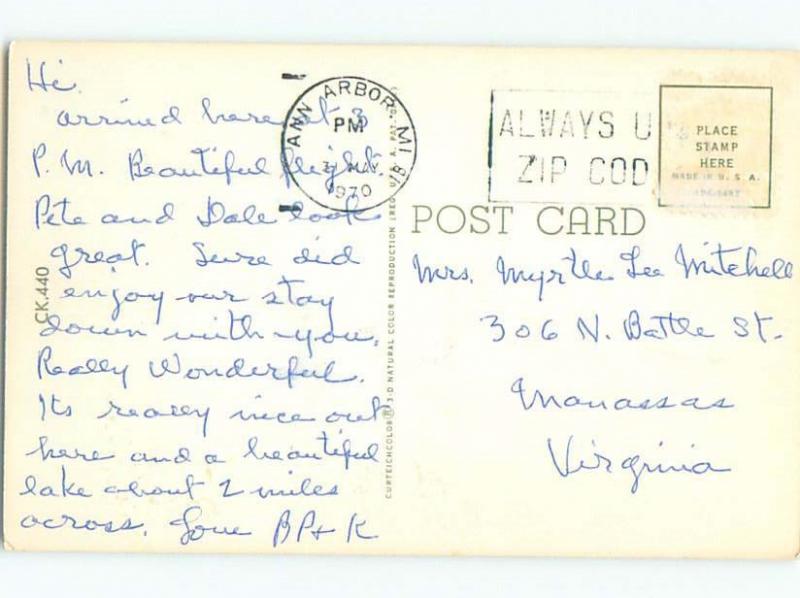 Hi.
arrived here at 3
P.M. Beautiful flight.
Pete and Dale look
great. Sure did
enjoy our stay
down with you.
Really Wonderful.
Its really nice out
here and a beautiful
lake about 2 miles
across. Love BP+K
CK.440
ANN ARBOR, MI 481
PM
MAY
1970
ALWAYS U
ZIP COD
PLACE
STAMP
HERE
MADE IN U. S. A.
POST CARD
CURTEICHCOLOR® 3-D NATURAL COLOR REPRODUCTION (REG. U.S.A. PAT. O
Mrs. Myrtle Lee Mitchell
306 N. Battle St.
Manassas
Virginia